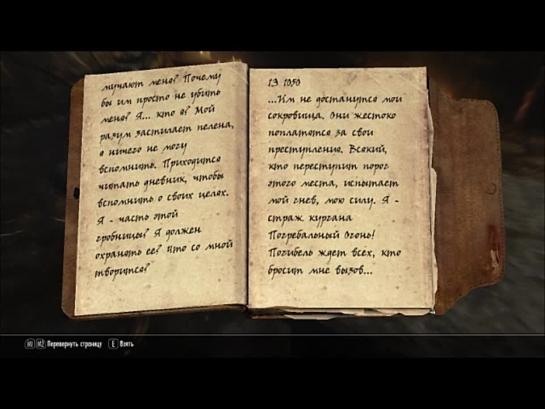 мучают меня? Почему
бы им просто не убить
меня? Я... кто я? Мой
разум застилает пелена,
я ничего не могу
вспомнить. Приходится
читать дневник, чтобы
вспомнить о своих целях.
Я - часть этой
гробницы? Я должен
охранять ее? Что со мной
творится?
1Э 1050
...Им не достанутся мои
сокровища. Они жестоко
поплатятся за свои
преступления. Всякий,
кто переступит порог
этого места, испытает
мой гнев, мою силу. Я -
страж кургана
Погребальный Огонь!
Погибель ждет всех, кто
бросит мне вызов...
M1 M2 Перевернуть страницу E Взять